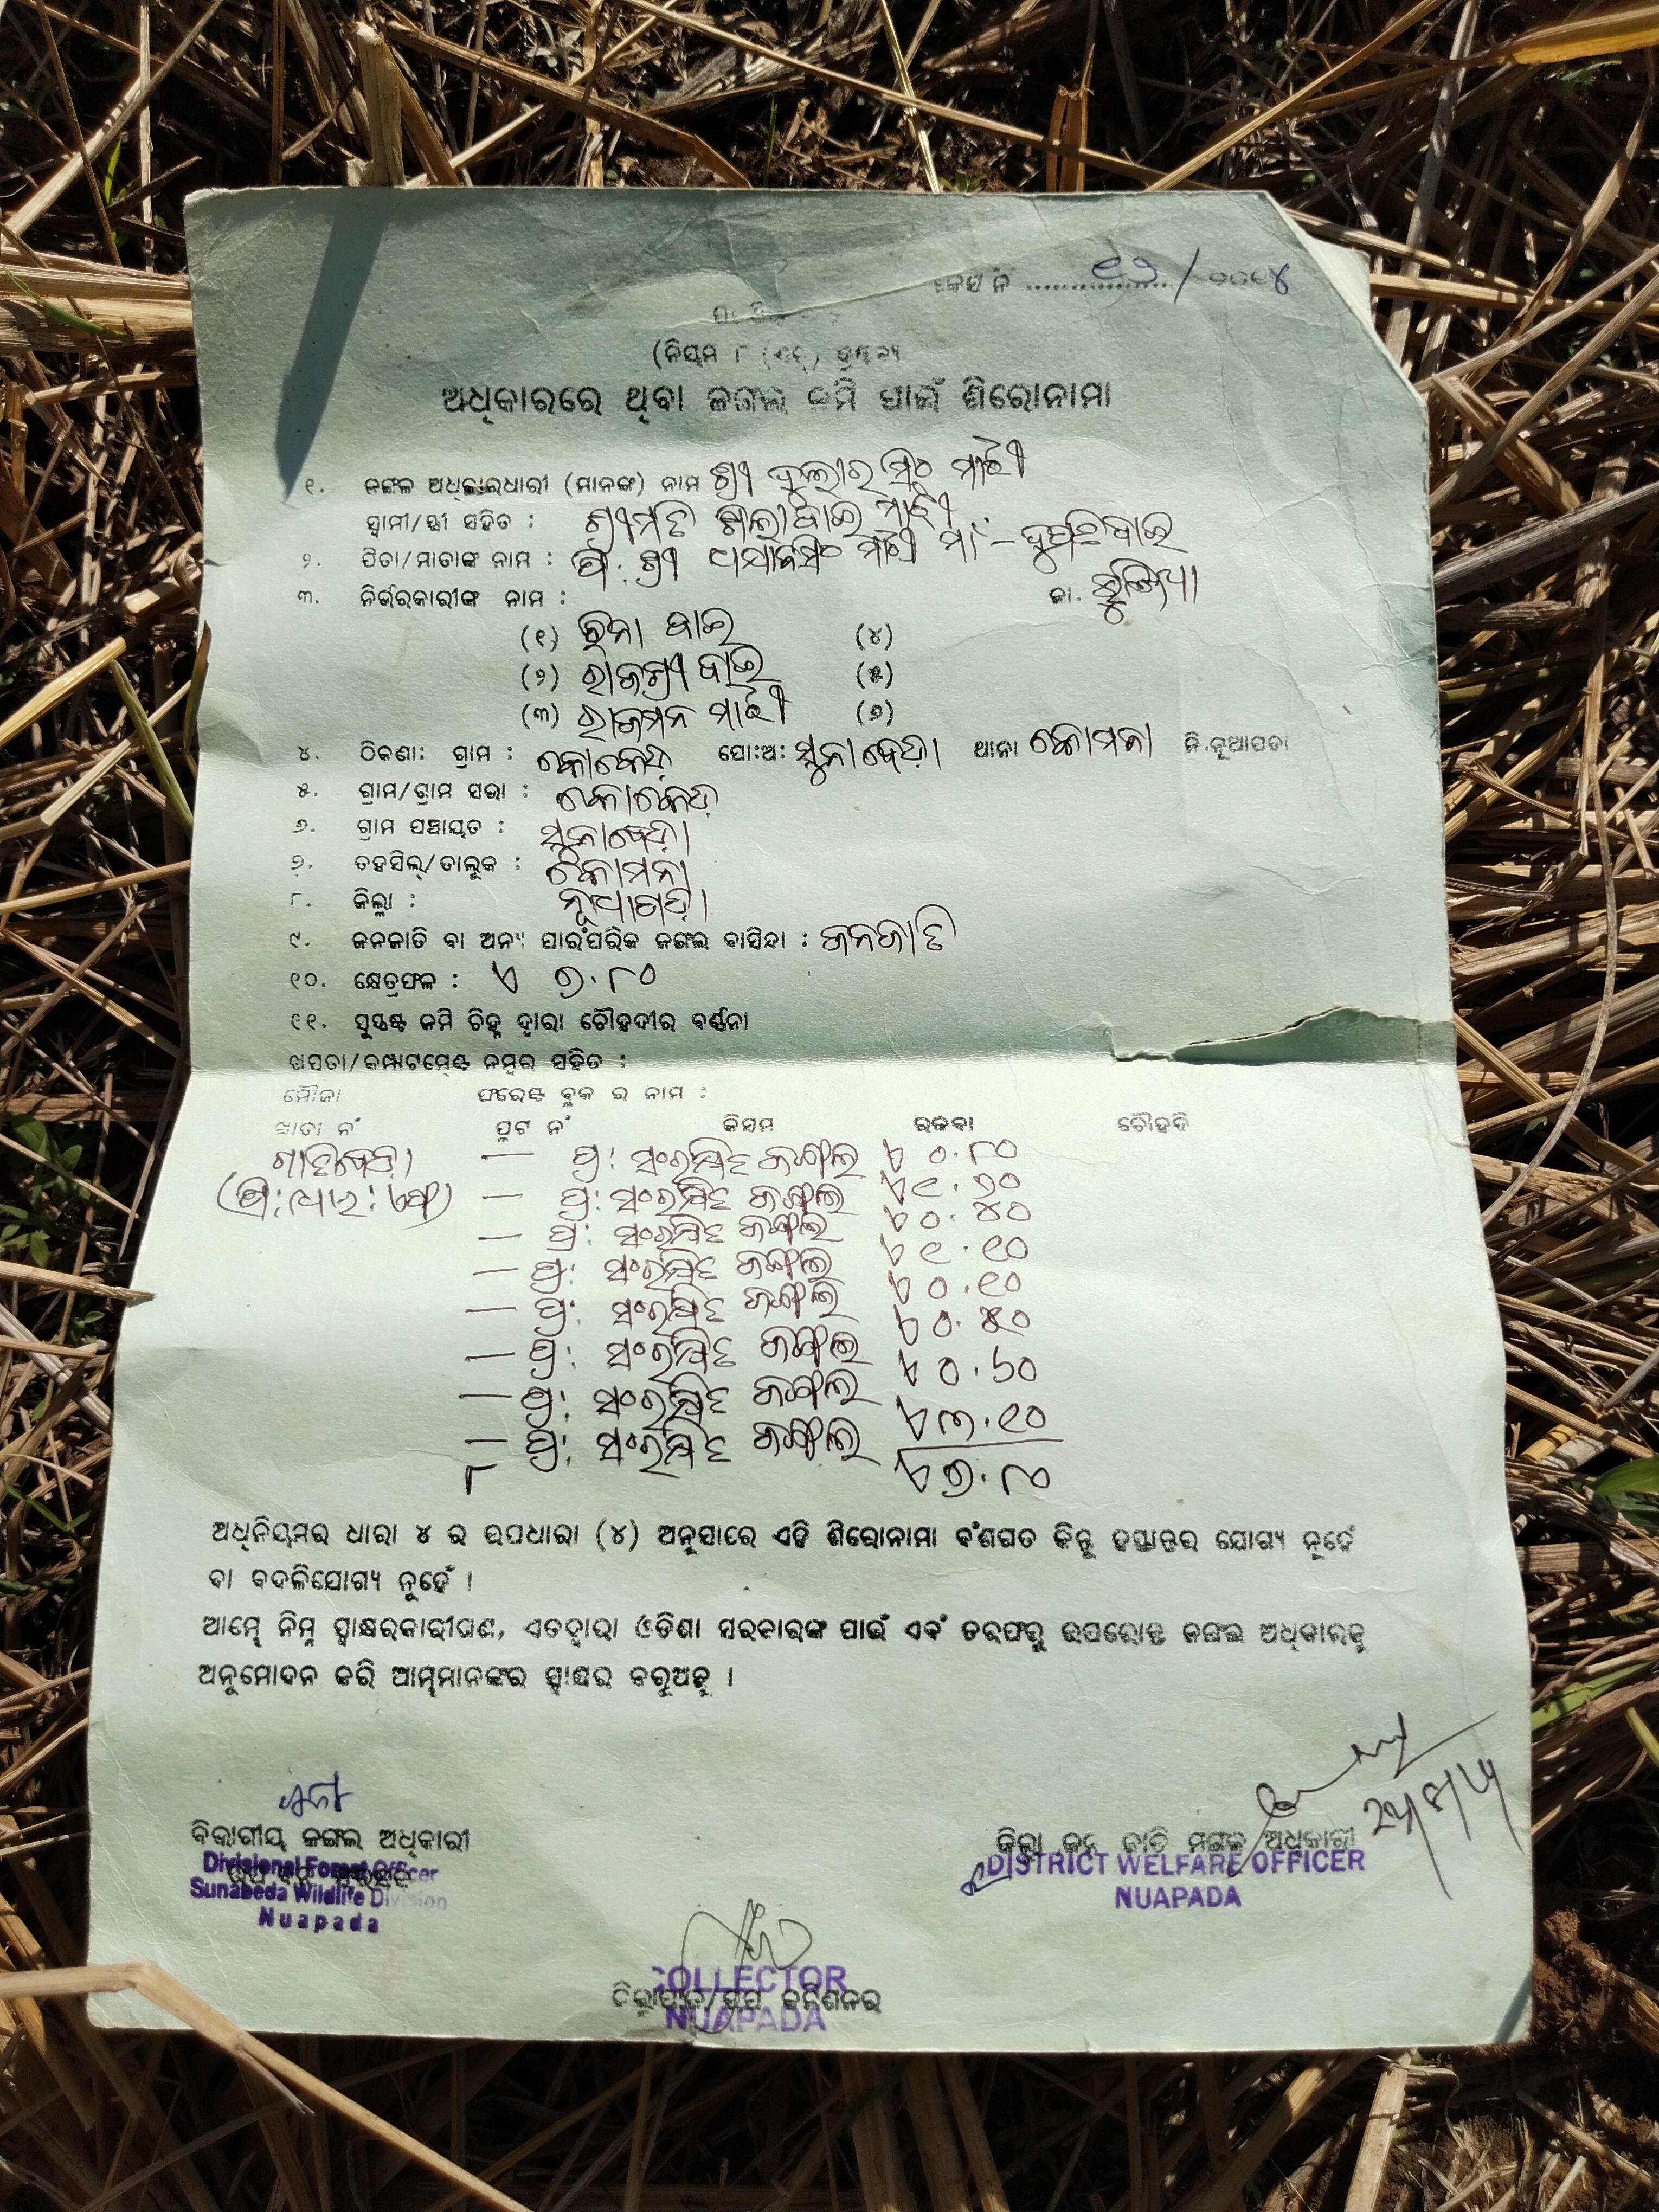 କେସ ନଂ ................ ୧୬ / ୨୦୧୪
(ନିୟମ ୮ (ଏଚ୍) ଦ୍ରଷ୍ଟବ୍ୟ
ଅଧିକାରରେ ଥିବା ଜଙ୍ଗଲ ଜମି ପାଇଁ ଶିରୋନାମା
୧. ଜଙ୍ଗଲ ଅଧିକାରଧାରୀ (ମାନଙ୍କ) ନାମ ଶ୍ରୀ ଦୁଲାର ସିଂ ମାଝୀ
ସ୍ୱାମୀ/ସ୍ତ୍ରୀ ସହିତ : ଶ୍ରୀମତି ମାଝୀ
୨. ପିତା/ମାତାଙ୍କ ନାମ : ପି: ଶ୍ରୀ ମାଝୀ ମା:-
୩. ନିର୍ଭରକାରୀଙ୍କ ନାମ : ଜା. ଭୁଞ୍ଜିଆ
(୧) ରିନା ବାଇ (୪)
(୨) ରାଜଶ୍ରୀ ବାଇ (୫)
(୩) ରାଜମନ ମାଝୀ (୬)
୪. ଠିକଣା: ଗ୍ରାମ : କୋକେଡ଼ା ପୋ:ଅ: ସୁନାବେଡ଼ା ଥାନା କୋମନା ଜି.ନୂଆପଡା
୫. ଗ୍ରାମ/ଗ୍ରାମ ସଭା : କୋକେଡ଼ା
୬. ଗ୍ରାମ ପଞ୍ଚାୟତ : ସୁନାବେଡ଼ା
୭. ତହସିଲ୍/ତାଲୁକ : କୋମନା
୮. ଜିଲ୍ଲା : ନୂଆପଡ଼ା
୯. ଜନଜାତି ବା ଅନ୍ୟ ପାରଂପରିକ ଜଙ୍ଗଲ ବାସିନ୍ଦା : ଜନଜାତି
୧୦. କ୍ଷେତ୍ରଫଳ : ଏ ୭.୮୦
୧୧. ସୁସ୍ପଷ୍ଟ ଜମି ଚିହ୍ନ ଦ୍ୱାରା ଚୌହଦୀର ବର୍ଣ୍ଣନା
ଖସଡା/କମ୍ପାଟମେଣ୍ଟ ନମ୍ବର ସହିତ :
ମୌଜା ଫରେଷ୍ଟ ବ୍ଲକ ର ନାମ :
ଖାତା ନଂ ପ୍ଲଟ ନଂ କିସମ ରକବା ଚୌହଦି
— ପ୍ର: ସଂରକ୍ଷିତ ଜଙ୍ଗଲ ଏ ୦.୮୦
— ପ୍ର: ସଂରକ୍ଷିତ ଜଙ୍ଗଲ ଏ ୧.୨୦
— ପ୍ର: ସଂରକ୍ଷିତ ଜଙ୍ଗଲ ଏ ୦.୪୦
— ପ୍ର: ସଂରକ୍ଷିତ ଜଙ୍ଗଲ ଏ ୧.୧୦
— ପ୍ର: ସଂରକ୍ଷିତ ଜଙ୍ଗଲ ଏ ୦.୧୦
— ପ୍ର: ସଂରକ୍ଷିତ ଜଙ୍ଗଲ ଏ ୦.୫୦
— ପ୍ର: ସଂରକ୍ଷିତ ଜଙ୍ଗଲ ଏ ୦.୬୦
— ପ୍ର: ସଂରକ୍ଷିତ ଜଙ୍ଗଲ ଏ ୩.୧୦
୮ ଏ ୭.୮୦
ଅଧିନିୟମର ଧାରା ୪ ର ଉପଧାରା (୪) ଅନୁସାରେ ଏହି ଶିରୋନାମା ବଂଶଗତ କିନ୍ତୁ ହସ୍ତାନ୍ତର ଯୋଗ୍ୟ ନୁହେଁ
ବା ବଦଳିଯୋଗ୍ୟ ନୁହେଁ ।
ଆମ୍ଭେ ନିମ୍ନ ସ୍ୱାକ୍ଷରକାରୀଗଣ, ଏତଦ୍ୱାରା ଓଡିଶା ସରକାରଙ୍କ ପାଇଁ ଏବଂ ତରଫରୁ ଉପରୋକ୍ତ ଜଙ୍ଗଲ ଅଧିକାରକୁ
ଅନୁମୋଦନ କରି ଆମ୍ଭମାନଙ୍କର ସ୍ୱାକ୍ଷର କରୁଅଛୁ ।
ବିଭାଗୀୟ ଜଙ୍ଗଲ ଅଧିକାରୀ
Divisional Forest Officer
Sunabeda Wildlife Division
Nuapada
ଜିଲ୍ଲା ଜନ ଜାତି ମଙ୍ଗଳ ଅଧିକାରୀ
DISTRICT WELFARE OFFICER
NUAPADA
COLLECTOR
ଜିଲ୍ଲାପାଳ/ଡେପୁଟି କମିଶନର
NUAPADA